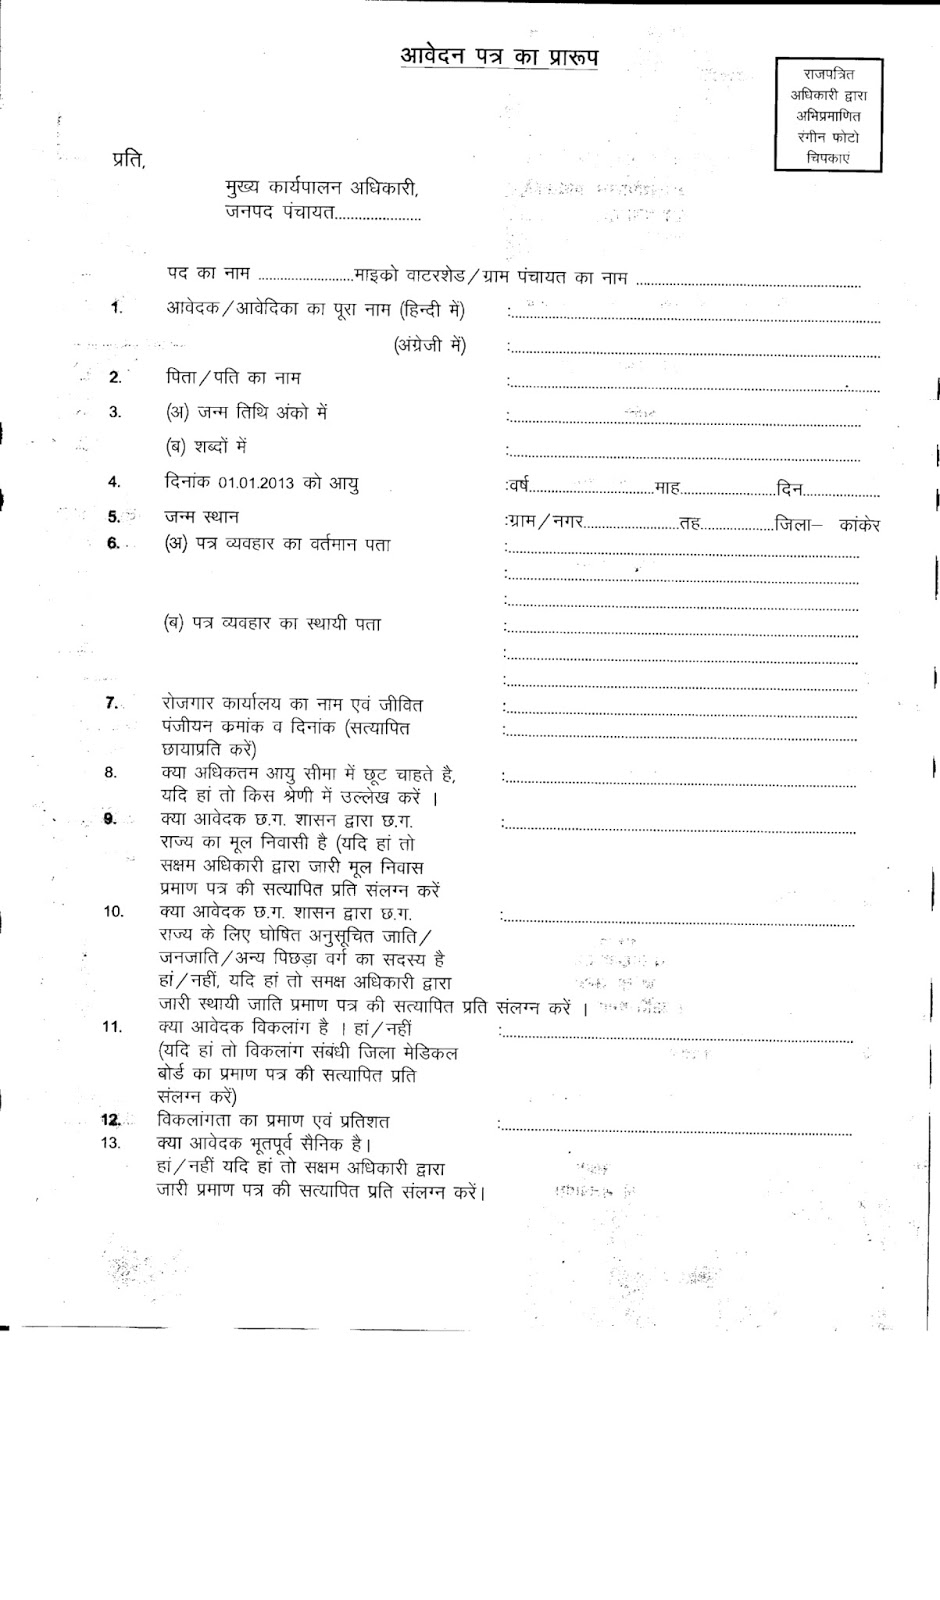 आवेदन पत्र का प्रारूप
राजपत्रित
अधिकारी द्वारा
अभिप्रमाणित
रंगीन फोटो
चिपकाएं
प्रति,
मुख्य कार्यपालन अधिकारी,
जनपद पंचायत......................
पद का नाम .........................माइको वाटरशेड/ग्राम पंचायत का नाम ..........................................................
1. आवेदक/आवेदिका का पूरा नाम (हिन्दी में) :..............................................................................................
(अंग्रेजी में) :..............................................................................................
2. पिता/पति का नाम :..............................................................................................
3. (अ) जन्म तिथि अंको में :.........................................................................................
(ब) शब्दों में :.........................................................................................
4. दिनांक 01.01.2013 को आयु :वर्ष................................माह.........................दिन....................
5. जन्म स्थान :ग्राम/नगर.........................तह...................जिला– कांकेर
6. (अ) पत्र व्यवहार का वर्तमान पता :.........................................................................................
:.........................................................................................
:.........................................................................................
(ब) पत्र व्यवहार का स्थायी पता :.........................................................................................
:.........................................................................................
:.........................................................................................
7. रोजगार कार्यालय का नाम एवं जीवित :.........................................................................................
पंजीयन कमांक व दिनांक (सत्यापित :.........................................................................................
छायाप्रति करें)
8. क्या अधिकतम आयु सीमा में छूट चाहते है, :.........................................................................................
यदि हां तो किस श्रेणी में उल्लेख करें ।
9. क्या आवेदक छ.ग. शासन द्वारा छ.ग. :.........................................................................................
राज्य का मूल निवासी है (यदि हां तो
सक्षम अधिकारी द्वारा जारी मूल निवास
प्रमाण पत्र की सत्यापित प्रति संलग्न करें
10. क्या आवेदक छ.ग. शासन द्वारा छ.ग. :.........................................................................................
राज्य के लिए घोषित अनुसूचित जाति/
जनजाति/अन्य पिछड़ा वर्ग का सदस्य है
हां/नहीं, यदि हां तो समक्ष अधिकारी द्वारा
जारी स्थायी जाति प्रमाण पत्र की सत्यापित प्रति संलग्न करें ।
11. क्या आवेदक विकलांग है । हां/नहीं :.........................................................................................
(यदि हां तो विकलांग संबंधी जिला मेडिकल
बोर्ड का प्रमाण पत्र की सत्यापित प्रति
संलग्न करें)
12. विकलांगता का प्रमाण एवं प्रतिशत :.........................................................................................
13. क्या आवेदक भूतपूर्व सैनिक है।
हां/नहीं यदि हां तो सक्षम अधिकारी द्वारा
जारी प्रमाण पत्र की सत्यापित प्रति संलग्न करें।